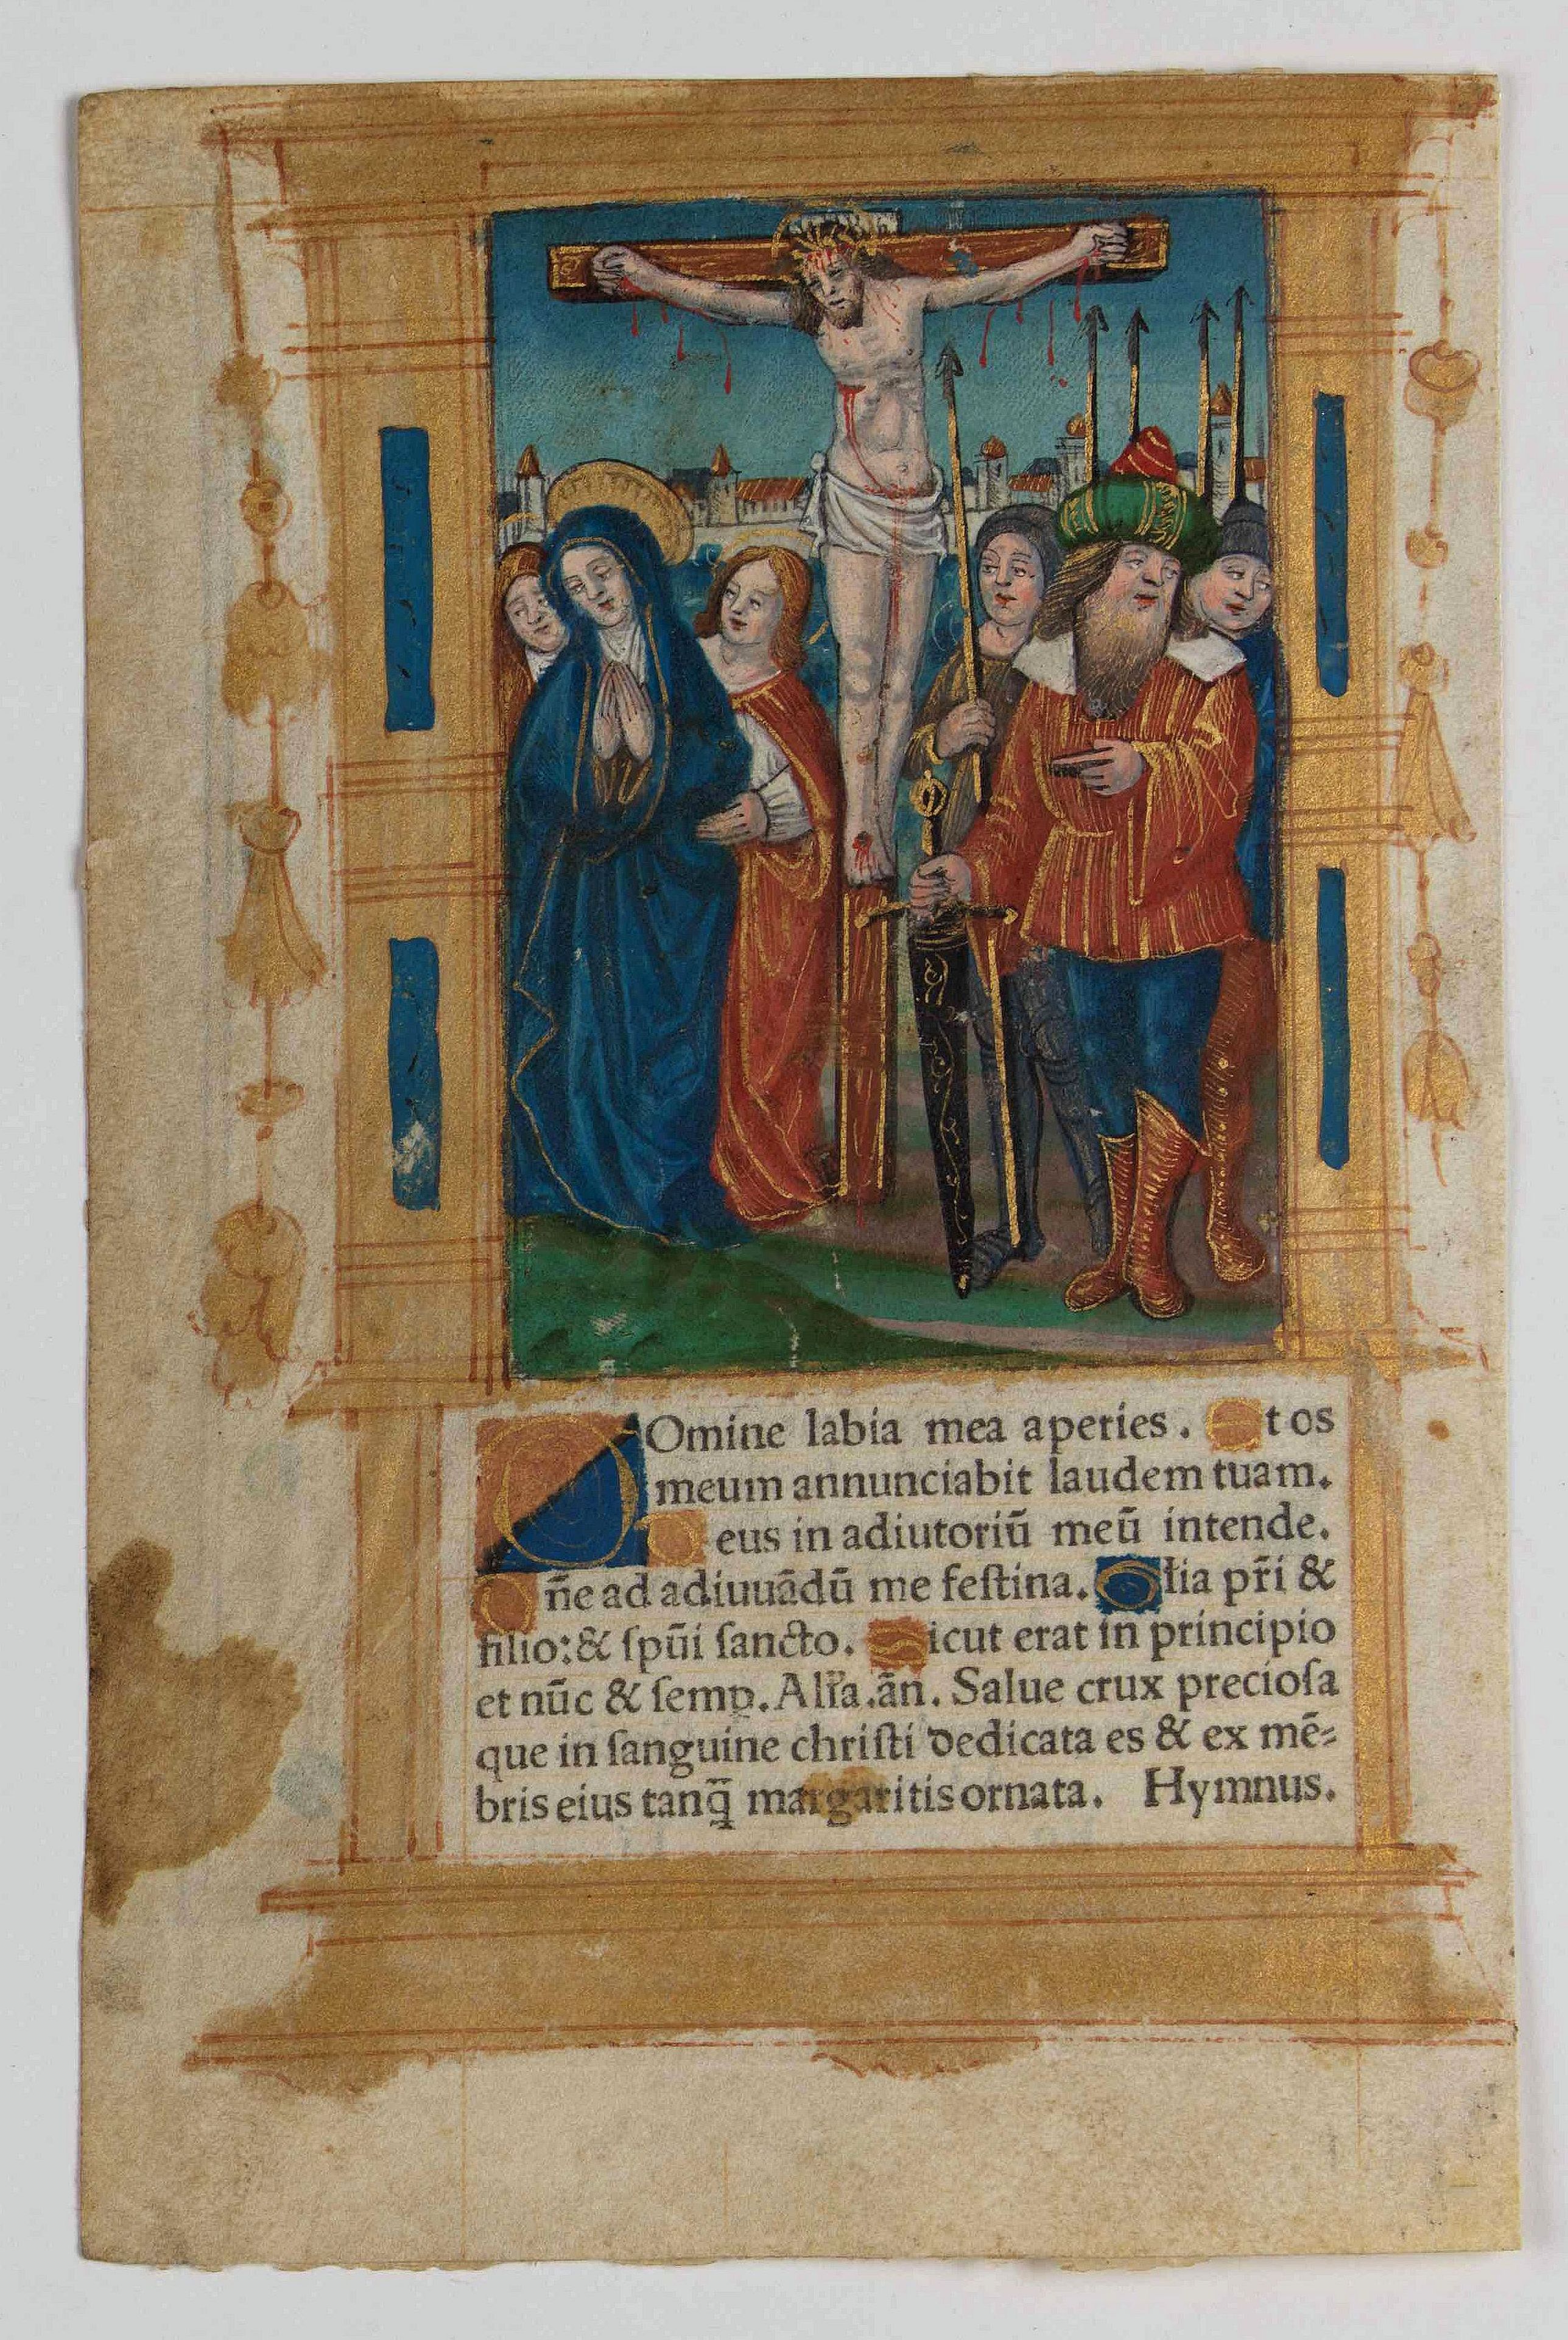 DOmine labia mea aperies. Et os
meum annunciabit laudem tuam.
Deus in adiutoriū meū intende.
Dn̄e ad adiuuādū me feſtina. Gl̄ia pr̄i &
filio: & ſpūi ſancto. Sicut erat in principio
et nūc & ſemꝑ. All'a. ān. Salue crux precioſa
que in ſanguine chriſti dedicata es & ex mē-
bris eius tanq̄ margaritis ornata. Hymnus.